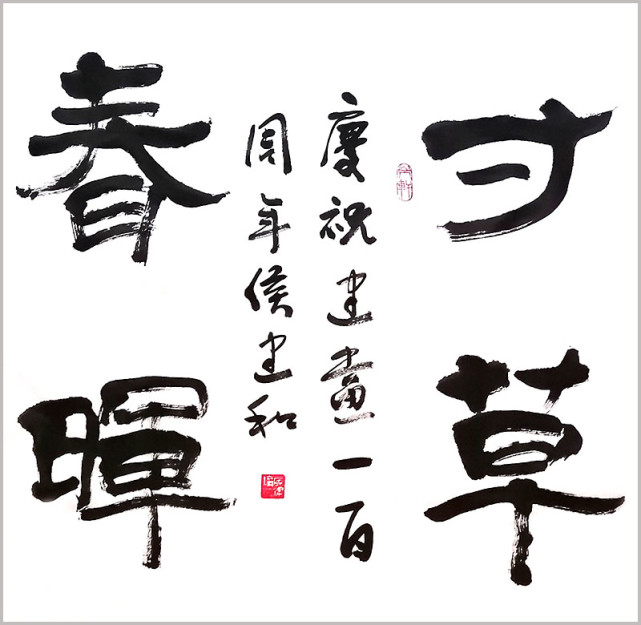 寸草
春暉
慶祝建畫一百
周年侯建和